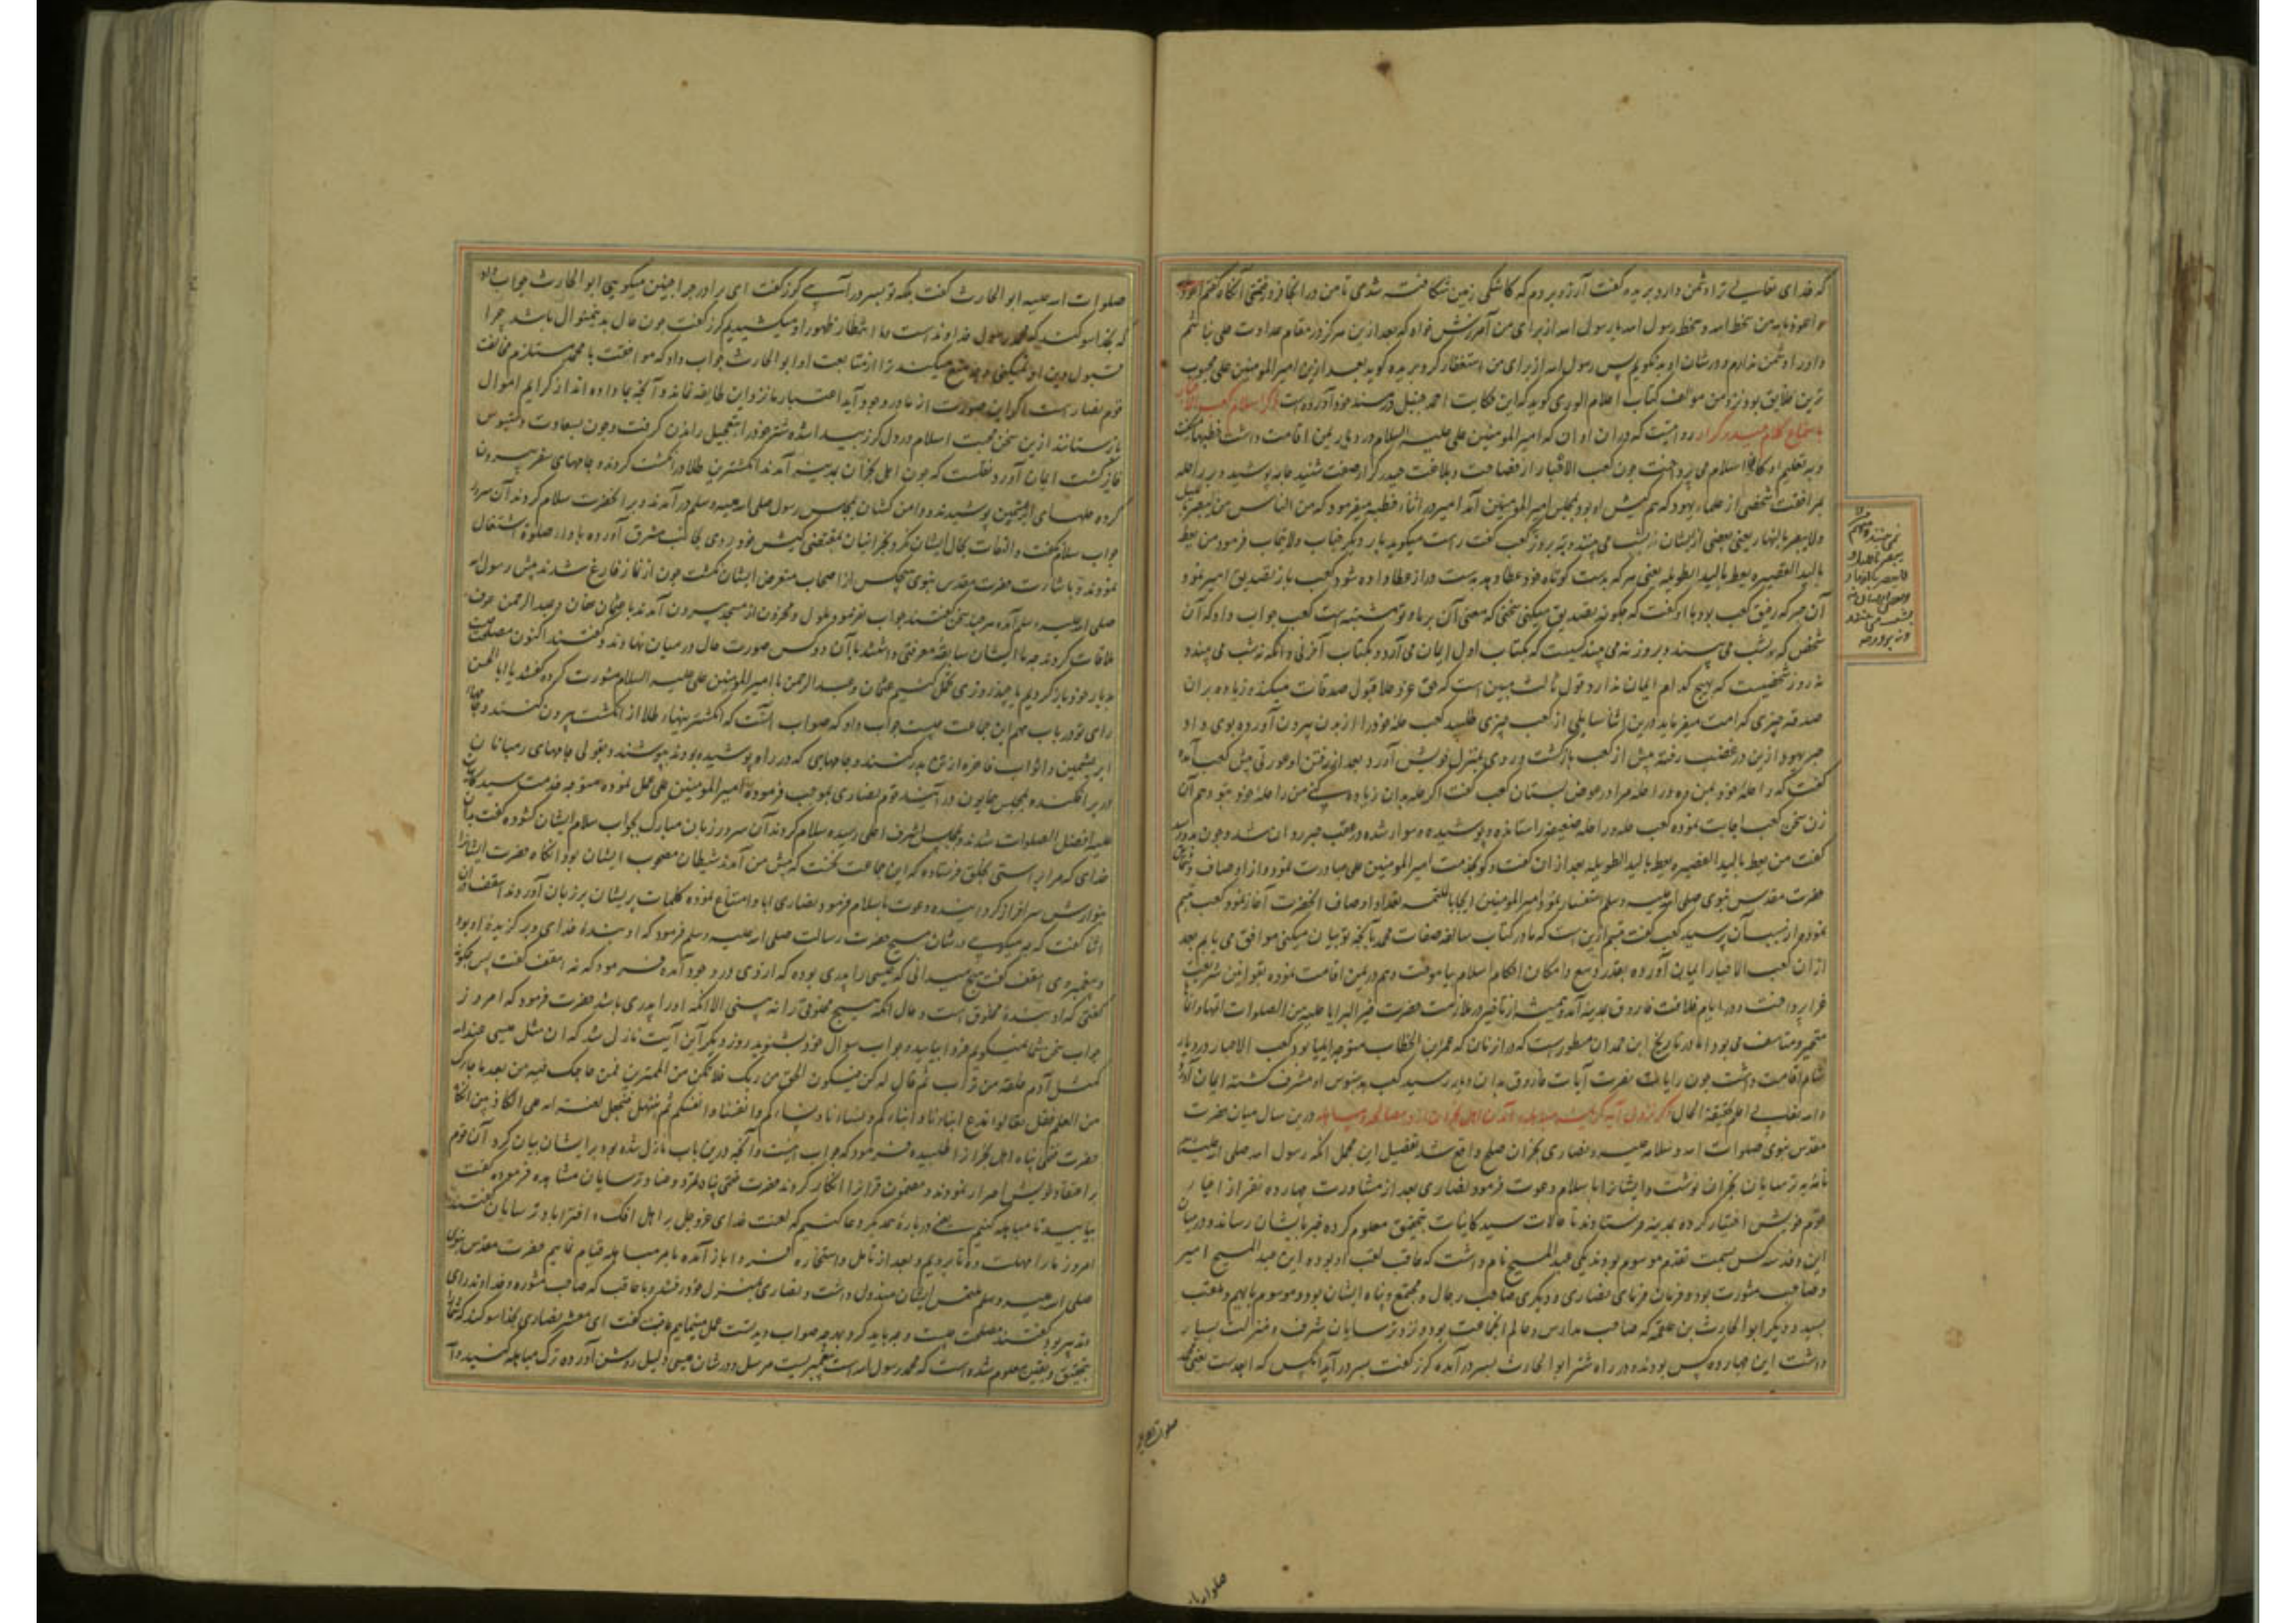 که خدای تعالی ترا دشمن دارد بریده گفت آرزو بردم که کاشکی زمین شکافته شدی تا من در آنجا فرو رفتمی آنگاه گفتم اعوذ
من سخط الله و سخط رسول الله یا رسول الله از برای من آمرزش خواه که بعد ازین هرگز در مقام عداوت علی نباشم
و او را دشمن ندارم و در شان او بد نگویم پس رسول الله از برای من استغفار کرد بریده گوید بعد ازین امیرالمومنین علی محبوب
ترین خلایق بود نزد من مولف کتاب اعلام الوری گوید که این حکایت احمد حنبل در مسند خود آورده است ذکر اسلام کعب الاحبار
باستماع کلام حیدر کرار روایتست که در ان اوان که امیرالمومنین علی علیه السلام در دیار یمن اقامت داشت خطبها میگفت
و به تعلیم احکام اسلام می پرداخت چون کعب الاخبار از فصاحت و بلاغت حیدر کرار صفت شنید حله پوشیده بر راحله
بمرافقت شخصی از علماء یهود که هم کیش او بود بمجلس امیرالمومنین آمد امیر در اثناء خطبه میفرمود که من الناس من یبصر باللیل
ولا یبصر بالنهار یعنی بعضی از ایشان بشب می بیند و نه بروز کعب گفت راست میگوید بار دیگر جناب ولایتماب فرمود من یعط
بالید القصیره یعط بالید الطویله یعنی هر که بدست کوتاه خود عطا دهد بدست دراز عطا داده شود کعب باز تصدیق امیر نمود
آن حبر که رفیق کعب بود با او گفت که چگونه تصدیق میکنی سخنی که معنی آن بر ما و تو مشتبه است کعب جواب داد که آن
شخص که بشب می بیند و بروز نه می بیند کسیست که بکتاب اول ایمان می آورد و بکتاب آخر نی و آنکه نه شب می بیند و
نه روز شخصیست که بهیچ کدام ایمان ندارد و قول ثالث مبین است که حق عز و علا قبول صدقات میکند و زیاده بران
صدقه چیزی کرامت میفرماید درین اثنا سایلی از کعب چیزی طلبید کعب حله خود را از بدن بیرون آورده بوی داد
حبر یهود ازین در غضب رفته پیش از کعب بازگشت و روی بمنزل خویش آورد بعد از رفتن او عورتی پیش کعب آمده
گفت که راحله خود بمن ده و راحله مرا در عوض بستان کعب گفت اگر حله بدان زیاده کنی من راحله خود بتو دهم آن
زن سخن کعب اجابت نموده کعب حله و راحله ضعیفه را ستانده و پوشیده و سوار شده در عقب حبر روان شد و چون بدو رسید
گفت من یعط بالید القصیره یعط بالید الطویله بعد از ان گفت و گو بخدمت امیرالمومنین علی مبادرت نمود و از اوصاف
حضرت مقدس نبوی صلی الله علیه وسلم استفسار نمود امیرالمومنین بتعداد اوصاف آنحضرت آغاز نمود کعب تبسم
نمود و از سبب آن پرسید کعب گفت تبسم ازین است که ما در کتاب سالفه صفات محمد با آنچه تو بیان میکنی موافق می یابم بعد
از ان کعب الاخبار ایمان آورده بقدر وسع و امکان احکام اسلام بیاموخت و هم در یمن اقامت نموده بقوانین شریعت
غرا پرداخت و در ایام خلافت فاروق بمدینه آمد و همیشه از تاخیر در ملازمت حضرت خیر البرایا علیه من الصلوات
متحیر و متاسف می بود اما در تاریخ ابن حمدان مسطور است که در زمان که عمر بن الخطاب متوجه ایلیا بود کعب الاحبار در دیار
شام اقامت داشت چون رایات نصرت آیات فاروق بدان دیار رسید کعب بپدبوس او مشرف گشته ایمان آورد
والله تعالی اعلم بحقیقة الحال ذکر نزول آیه کریمه مباهله و آمدن اهل نجران درین سال میان حضرت
مقدس نبوی صلوات الله و سلامه علیه و نصاری نجران صلح واقع شد تفصیل این مجمل انکه رسول الله صلی الله علیه وسلم
نامه به ترسایان نجران نوشت و ایشانرا باسلام دعوت فرمود نصاری بعد از مشاورت چهارده نفر از اخیار
قوم خویش اختیار کرده بمدینه فرستادند تا حالات سید کاینات بتحقیق معلوم کرده خبر بایشان رساند و در میان
این وفد سه کس بسمت تقدم موسوم بودند یکی عبدالمسیح نام داشت که عاقب لقب او بوده این عبدالمسیح امیر
و صاحب مشورت بود و فرمان فرمای نصاری و دیگری صاحب رحال و مجتمع و پناه ایشان بود و موسوم بایهم و ملقب
بسید و دیگر ابوالحارث بن علقمه که صاحب مدارس و عالم انجماعت بود و نزد ترسایان شرف و منزلت بسیار
داشت این چهارده کس بودند و در راه شتر ابوالحارث بسر درآمده کرز گفت بسر در آید انکس که ابعدست یعنی محمد
صلوات الله علیه ابوالحارث گفت بلکه تو بسر در آئی کرز گفت ای برادر چرا چنین میگویی ابوالحارث جواب داد
که بخدا سوگند که محمد رسول خداوند است و ما انتظار ظهور او میکشیدیم کرز گفت چون حال بدینمنوال باشد چرا
قبول دین او نمیکنی و چه منع میکند ترا از متابعت او ابوالحارث جواب داد که موافقت با محمد مستلزم مخالفت
قوم نصار است اگر این صورت از ما در وجود آید اعتبار ما نزد این طایفه نماند و آنچه بما داده اند از کرایم اموال
بازستانند ازین سخن محبت اسلام در دل کرز پیدا شده شتر خود را بتعجیل راندن گرفت و چون بسعادت دستبوس
فایز گشت ایمان آورد نقلست که چون اهل نجران بمدینه آمدند انگشترین طلا در انگشت کردند و جامهای سفر بیرون
کرده حلهای ابریشمین پوشیدند و دامن کشان بمجلس رسول صلی الله علیه وسلم درآمدند و بر انحضرت سلام کردند آن سرور
جواب سلام نگفت و التفات بحال ایشان نکرد نجرانیان بمقتضی کیش خود روی بجانب مشرق آورده باداء صلوة اشتغال
نمودند و باشارت حضرت مقدس نبوی هیچکس از اصحاب متعرض ایشان نگشت چون از نماز فارغ شدند پیش رسول
صلی الله علیه وسلم آمده هر چند سخن گفتند جواب نفرمود ملول و محزون از مسجد بیرون آمدند با عثمان عفان و عبدالرحمن عوف
ملاقات کردند چه با ایشان سابقه معرفتی داشتند با آن دو کس صورت حال در میان نهادند و گفتند اکنون مصلحت چیست
بدیار خود باز گردیم یا چند روزی تحمل کنیم عثمان و عبدالرحمن با امیرالمومنین علی علیه السلام مشورت کرده گفتند یا ابا الحسن
رای تو در باب مهم این جماعت چیست جواب داد که صواب آنست که انگشترینهاء طلا از انگشت بیرون کنند و جامهاء
ابریشمین و اثواب فاخره از تن بدر کنند و جامهایی که در راه پوشیده بودند بپوشند و بقولی جامهای رهبانان
در بر افکنده بمجلس همایون در آیند قوم نصاری بموجب فرموده امیرالمومنین علی عمل نموده متوجه خدمت سید کاینات
علیه افضل الصلوات شدند و بمجلس اشرف اعلی رسیده سلام کردند آن سرور زبان مبارک بجواب سلام ایشان کشوده گفت بدان
خدای که مرا براستی بخلق فرستاده که این جماعت نخست که پیش من آمدند شیطان مصحوب ایشان بود انگاه حضرت ایشانرا
بنوازش سرافراز گردانیده دعوت باسلام فرمود نصاری ابا و امتناع نموده کلمات پریشان بر زبان آوردند اسقف دران
اثنا گفت که چه میگویی در شان مسیح حضرت رسالت صلی الله علیه وسلم فرمود که او بنده خدای و برگزیده او بود
و پیغمبر وی اسقف گفت هیچ میدانی که عیسی را پدری بوده که از وی در وجود آمده فرمود که نه اسقف گفت پس چگونه
گفتی که او بنده مخلوق است و حال انکه هیچ مخلوقی را نه بینی الا انکه او را پدری باشد حضرت فرمود که امروز
جواب سخن شما نمیگویم فردا بیایید و جواب سوال خود بشنوید روز دیگر این آیت نازل شد که ان مثل عیسی عند الله
کمثل آدم خلقه من تراب ثم قال له کن فیکون الحق من ربک فلا تکن من الممترین فمن حاجک فیه من بعد ما جاءک
من العلم فقل تعالوا ندع ابناءنا و ابناءکم و نساءنا و نساءکم و انفسنا و انفسکم ثم نبتهل فنجعل لعنة الله علی الکاذبین انگاه
حضرت ختمی پناه اهل نجران را طلبیده فرمود که جواب اینست و آنچه درین باب نازل شده بود بر ایشان بیان کرد آن قوم
بر اعتقاد خویش اصرار نمودند و مضمون قرآن را انکار کردند حضرت ختمی پناه ترسایان مشاهده فرموده گفت
بیایید تا مباهله کنیم یعنی درباره یکدیگر دعا کنیم که لعنت خدای عز و جل بر اهل افک و افترا باد ترسایان گفتند
امروز ما را مهلت ده تا برویم و بعد از تامل و استخاره فردا باز آمده بامر مباهله قیام نمایم حضرت مقدس نبوی
صلی الله علیه وسلم ملتمس ایشان مبذول داشت و نصاری بمنزل خود رفتند و با عاقب که صاحب مشوره و خداوند رای
و تدبیر بود گفتند مصلحت چیست و چه باید کرد عاقب گفت ای معشر نصاری بخدا سوگند که شما
بتحقیق و یقین معلوم شده است که محمد رسول الله است پیغمبریست مرسل و در شان عیسی دلیل روشن آورده ترک مباهله کنید